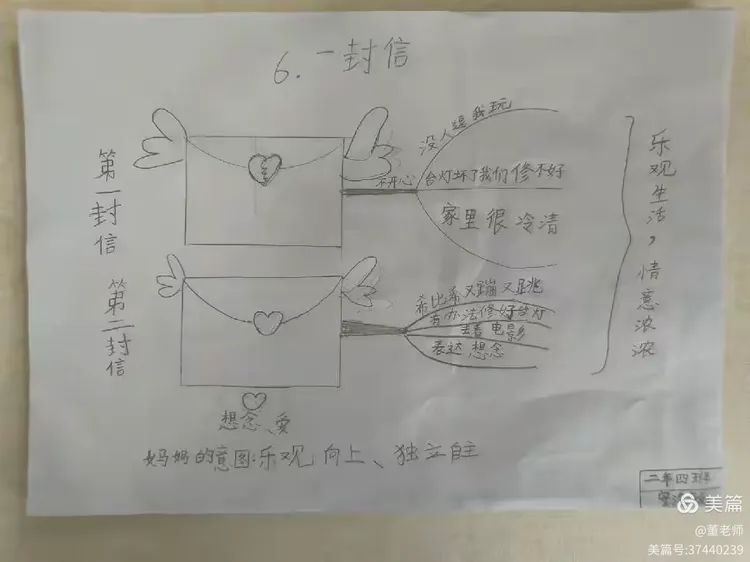 6.一封信
第一封信
不开心
没人逗我玩
台灯坏了我们修不好
家里很冷清
第二封信
希比希又蹦又跳
有办法修好台灯
去看电影
表达想念
乐观生活，情意浓浓
想念、爱
妈妈的意图:乐观向上、独立自主
二年四班
美篇
@董老师
美篇号:37440239